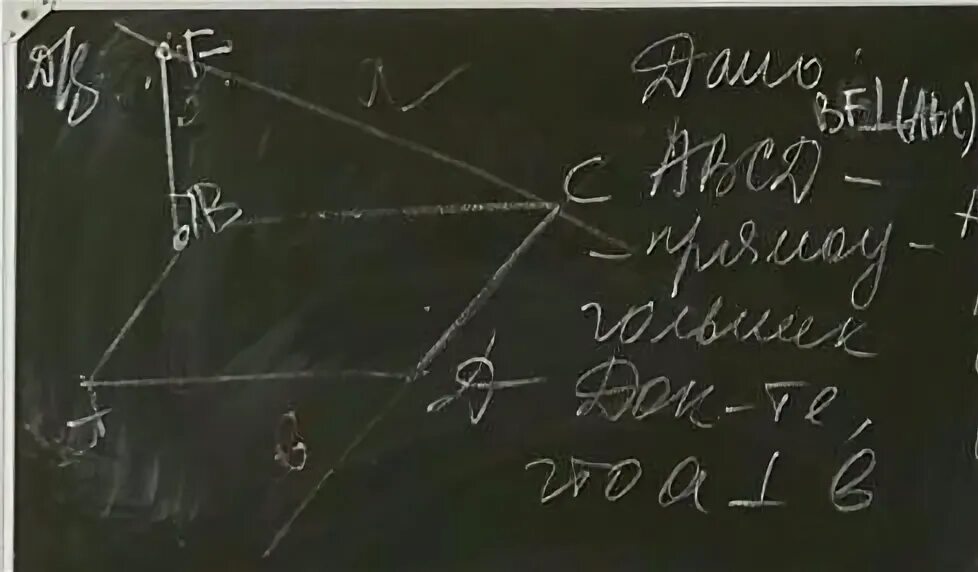 Д/з
F
a
B
C
A
Д
в
Дано:
BF⊥(ABC)
ABCD -
- прямоу -
гольник
Док-те,
что a ⊥ в